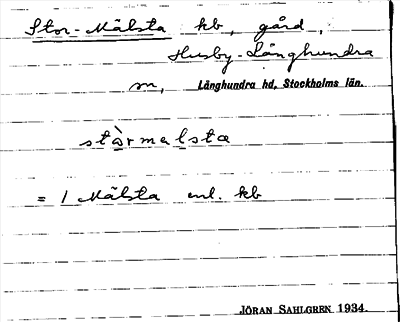 Stor-Mälsta kb, gård,
Husby-Långhundra
sn, Långhundra hd, Stockholms län.
stàrmalsta
= 1 Mälsta enl. kb
JÖRAN SAHLGREN 1934.